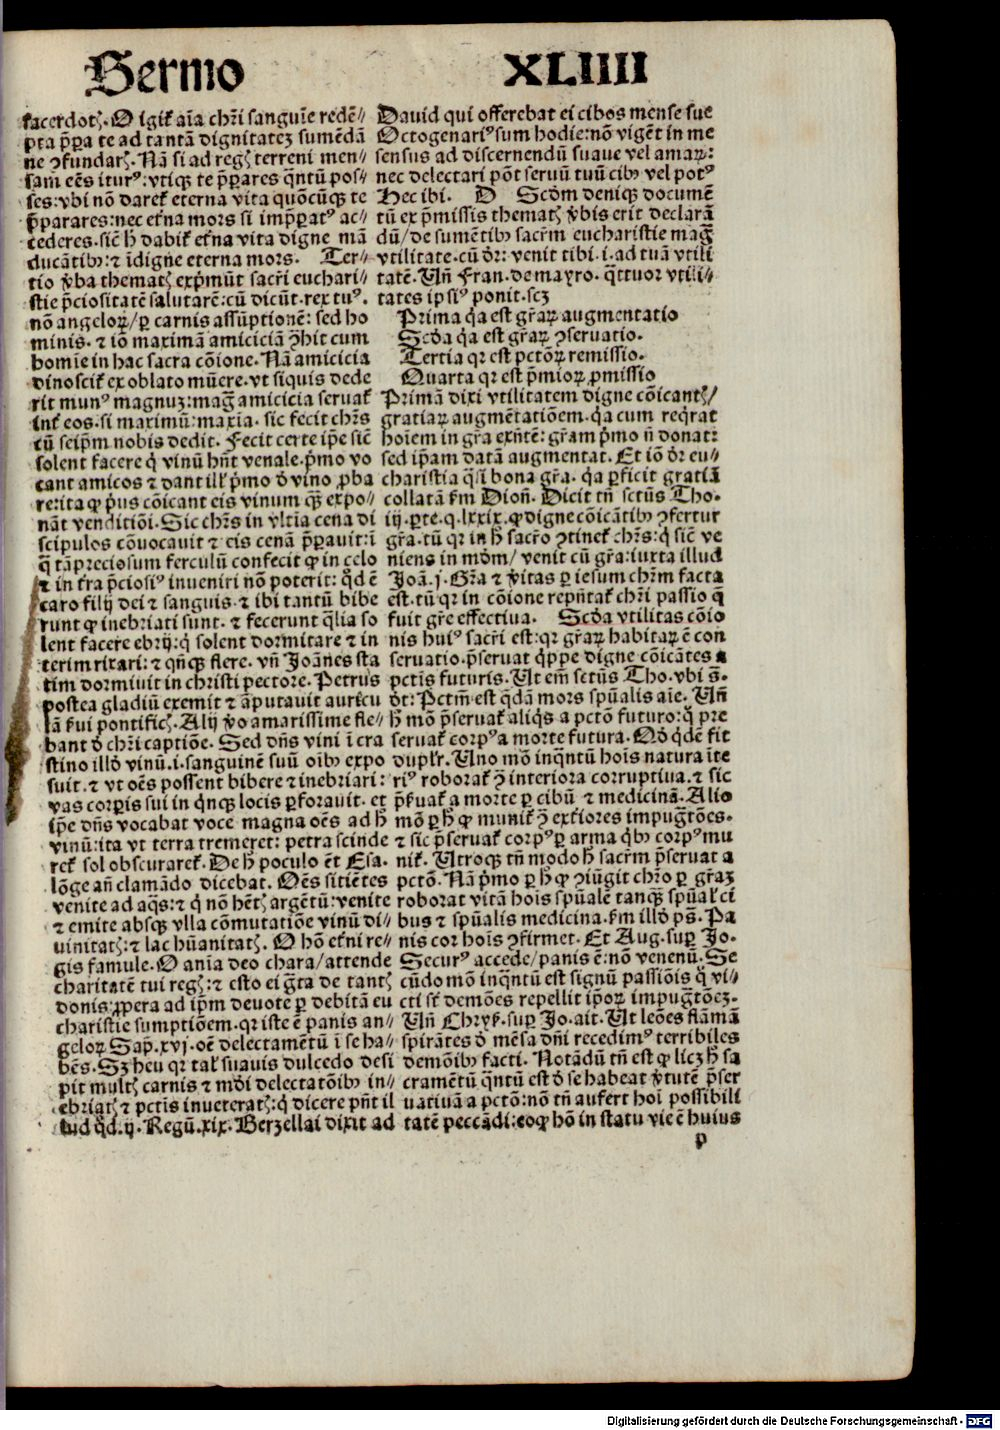 Sermo XLIIII
sacerdotꝭ. O igit᷑ aĩa chr̃i sanguĩe redẽ⸗
pta p̃para te ad tantã dignitatez sumẽdã
ne ꝯfundarꝭ. Nã si ad regꝭ terreni men⸗
sam eẽs iturꝰ: vtiqꝫ te p̃parares q̃ntũ pos⸗
ses: vbi nõ daret᷑ eterna vita quõcũqꝫ te
p̃parares: nec et᷑na mors si imp̃patꝰ ac⸗
cederes. sic̃ h̃ dabit᷑ et᷑na vita digne mã
ducãtibꝫ: ⁊ ĩdigne eterna mors. Ter⸗
tio v̾ba thematꝭ exp̃mũt sacr̃i euchari⸗
stie p̃ciositatẽ salutarẽ: cũ dicũt. rex tuꝰ.
nõ angeloꝝ / ꝑ carnis assũptionẽ: sed ho
minis. ⁊ iõ maximã amiciciã ꝯ̃hit cum
homĩe in hac sacra cõione. Nã amicicia
dinoscit᷑ ex oblato mũere. vt siquis dede
rit munꝰ magnuz: mag̃ amicicia seruat᷑
int᷑ eos. si maximũ: maxĩa. sic fecit chr̃s
cũ seip̃m nobis dedit. Fecit certe ip̃e sic̃
solent facere q̇ vinũ hñt venale. p̃mo vo
cant amicos ⁊ dant ill̃ p̃mo d̾ vino ꝓba
re: ita ꝙ p̾us cõicant eis vinum qꝫ̃ expo⸗
nãt venditiõi. Sic chr̃s in vltĩa cena di
scipulos cõuocauit ⁊ eis cenã p̃parauit: ĩ
q̃ tã preciosum ferculũ confecit ꝙ in celo
⁊ in t᷑ra p̃ciosiꝰ inueniri nõ poterit: qd̾ ẽ
caro filij dei ⁊ sanguis. ⁊ ibi tantũ bibe
runt ꝙ inebriati sunt. ⁊ fecerunt q̃lia so
lent facere ebrij: q̇ solent dormitare ⁊ in
terim rixari: ⁊ qñqꝫ flere. vñ Joãnes sta
tim dormiuit in christi pectore. Petrus
postea gladiũ exemit ⁊ ãputauit auricu
lã s᷑ui pontificꝭ. Alij v̾o amarissime fle⸗
bant d̾ chr̃i captiõe. Sed dñs vini ĩ cra
stino illd̾ vinũ .i. sanguinẽ suũ oĩbꝫ expo
suit. ⁊ vt oẽs possent bibere ⁊ inebriari:
vas corꝑis sui in q̇nqꝫ locis ꝑforauit. et
ip̃e dñs vocabat voce magna oẽs ad h̃
vinũ: ita vt terra tremeret: petra scinde
ret᷑ sol obscuraret᷑. De h̃ poculo ẽt Esa.
lõge añ clamãdo dicebat. Oẽs sitiẽtes
venite ad aq̃s: ⁊ q̇ nõ hẽtꝭ argẽtũ: venite
⁊ emite absqꝫ vlla cõmutatiõe vinũ di⸗
uinitatꝭ: ⁊ lac hũanitatꝭ. O hõ et᷑ni re⸗
gis famule. O anĩa deo chara / attende
charitatẽ tui regꝭ: ⁊ esto ei g̃ta de tantꝭ
donis: ꝓpera ad ip̃m deuote ꝑ debitã eu
charistie sumptiõem. qr iste ẽ panis an⸗
geloꝝ Sap̃. xvj. oẽ delectamẽtũ ĩ se ha⸗
bẽs. Sꝫ heu qr tal̾ suauis dulcedo desi
pit multꝭ carnis ⁊ mũdi delectatõibꝫ in⸗
ebriatꝭ ⁊ pctĩs inueteratꝭ: q̇ dicere pñt il
lud qd̾ .ij. Regũ. xix. Berzellai dixit ad
Dauid qui offerebat ei cibos mense sue
Octogenariꝰ sum hodie: nõ vigẽt in me
sensus ad discernendũ suaue vel amaꝝ:
nec delectari põt seruũ tuũ cibꝰ vel potꝰ
Hec ibi. D Scd̾m denique documẽ
tũ ex p̃missis thematꝭ v̾bis erit declarã
dũ / de sumẽtibꝫ sacr̃m eucharistie mag̃
vtilitate. cũ dr̃: venit tibi .i. ad tuã vtili
tatẽ. Vñ Fran. de mayro. q̃ttuor vtili⸗
tates ipsiꝰ ponit. scꝫ
Prima q̃a est gr̃aꝝ augmentatio
Scd̾a q̃a est gr̃aꝝ ꝯseruatio.
Tertia qr est pctõꝝ remissio.
Quarta qr est p̃mioꝝ ꝓmissio
Primã dixi vtilitatem digne cõicantꝭ /
gratiaꝝ augmẽtatiõem. q̃a cum req̇rat
hoĩem in gr̃a exñtẽ: gr̃am p̃mo ñ donat:
sed ip̃am datã augmentat. Et iõ dr̃ eu⸗
charistia q̃si bona gr̃a. q̃a ꝑficit gratiã
collatã s᷑m Dioñ. Dicit tñ sctũs Tho.
iij. ꝑte. q. lxxix. ꝙ digne cõicãtibꝫ ꝯfertur
gr̃a. tũ qr in h̃ sacr̃o ꝯtinet᷑ chr̃s: q̇ sic̃ ve
niens in mũdm / venit cũ gr̃a: iuxta illud
Joã. j. Gr̃a ⁊ v̾itas ꝑ iesum chr̃m facta
est. tũ qr in cõione rep̃ñtat᷑ chr̃i passio q̃
fuit gr̃e effectiua. Scd̾a vtilitas cõio
nis huiꝰ sacr̃i est: qr gr̃aꝝ habitaꝝ ẽ con
seruatio. p̃seruat q̇ppe digne cõicãtes a
pctĩs futuris. Vt em̃ sctũs Tho. vbi s̃.
dt̃: Pctm̃ est q̃dã mors spũalis aĩe. Vñ
h̃ mõ p̃seruat᷑ aliq̇s a pctõ futuro: q̃ pre
seruat᷑ corpꝰ a morte futura. Qd̾ q̇dẽ fit
duplr̃. Vno mõ inq̃ntũ hoĩs natura ĩte
riꝰ roborat᷑ ꝯ̃ interiora corruptiua. ⁊ sic
p̃s᷑uat᷑ a morte ꝑ cibũ ⁊ medicinã. Alio
mõ ꝑ h̃ ꝙ munit᷑ ꝯ̃ ext᷑iores impug̃tões.
⁊ sic p̃seruat᷑ corpꝰ ꝑ arma q̇bꝫ corpꝰ mu
nit᷑. Vtroqꝫ tñ modo h̃ sacr̃m p̃seruat a
pctõ. Nã p̃mo ꝑ h̃ ꝙ ꝯiũgit chr̃o ꝑ gr̃aꝫ
roborat vitã hoĩs spũalẽ tanqꝫ̃ spũal̾ ci
bus ⁊ spũalis medicina. s᷑m illd̾ pṡ. Pa
nis cor hoĩs ꝯfirmet. Et Aug. suꝑ Jo.
Securꝰ accede / panis ẽ: nõ venenũ. Se
cũdo mõ inq̃ntũ est signũ passiõis q̃ vi⸗
cti st̃ demões repellit ip̃oꝝ impug̃tõeꝫ.
Vñ Chrys. suꝑ Jo. ait. Vt leões flãmã
spirãtes d̾ mẽsa dñi recedimꝰ terribiles
demõibꝫ facti. Notãdũ tñ est ꝙ licꝫ h̃ sa
cramẽtũ q̃ntũ est d̾ se habeat v̾tutẽ p̃ser
uatiuã a pctõ: nõ tñ aufert hoĩ possibili
tatẽ peccãdi: eo ꝙ hõ in statu vie ẽ huius
p
Digitalisierung gefördert durch die Deutsche Forschungsgemeinschaft - DFG